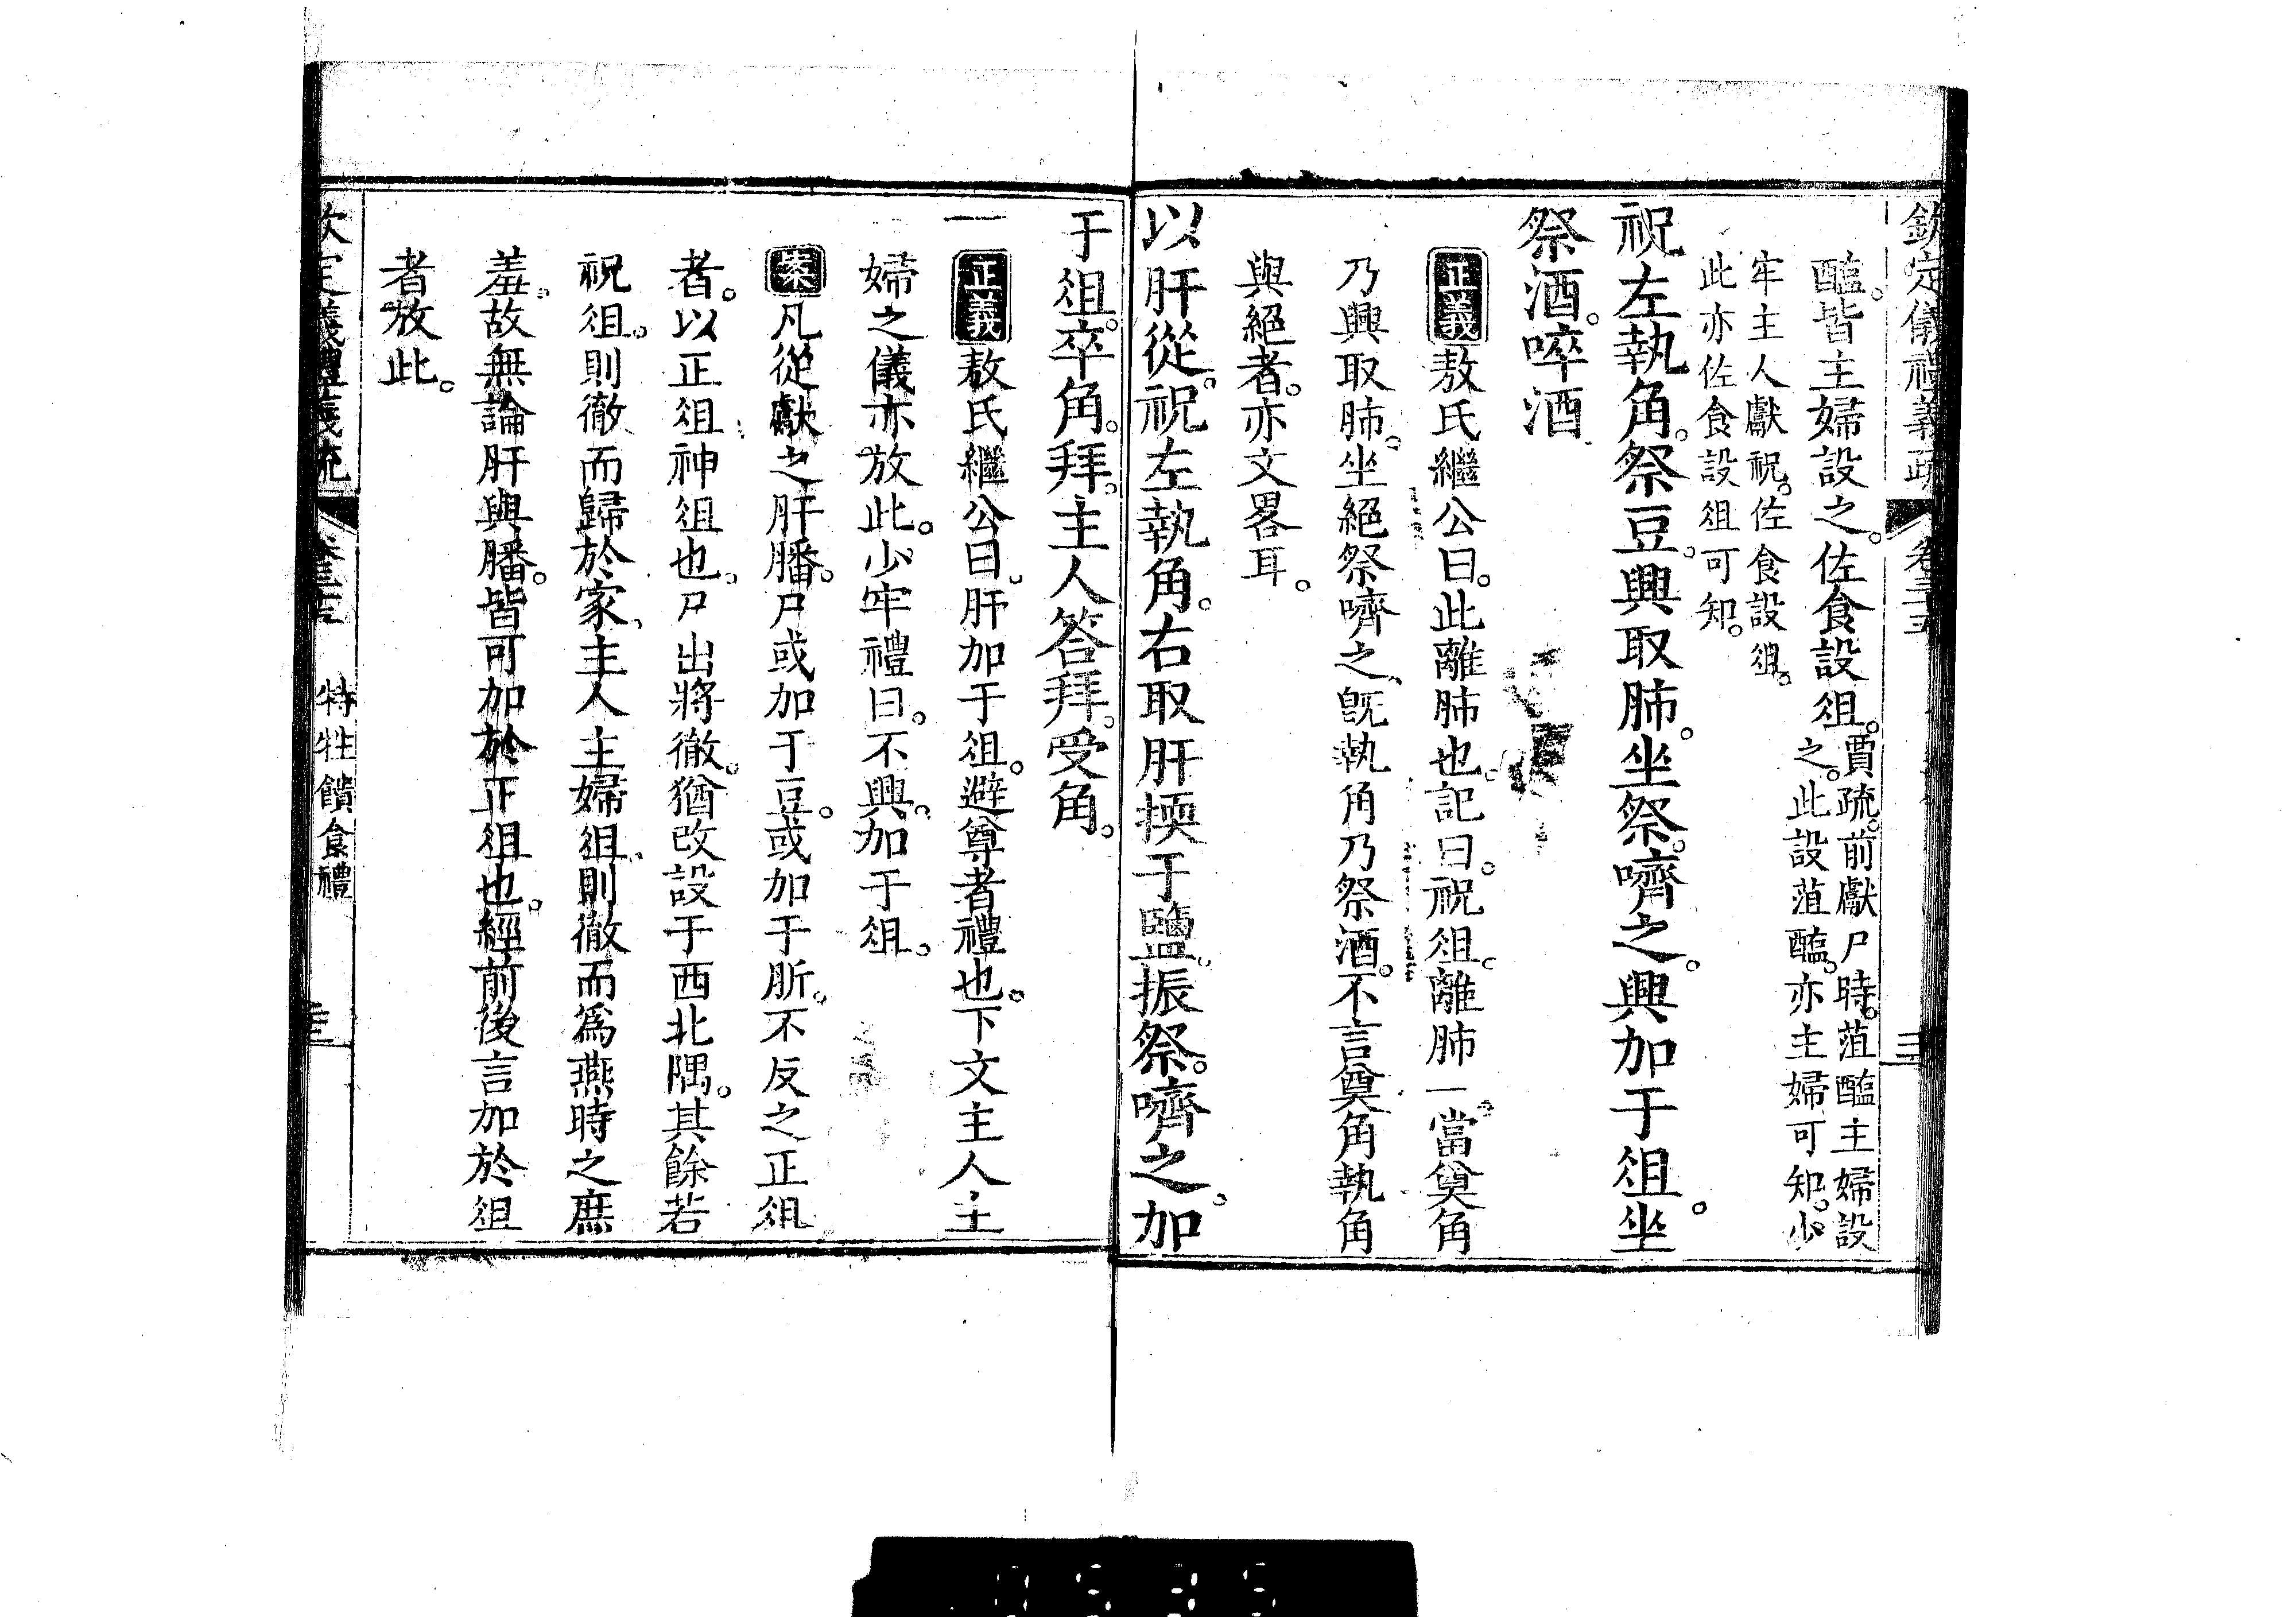 欽定儀禮義疏 卷三十五
醢。皆主婦設之。佐食設俎。賈疏。前獻尸時。菹醢主婦設
之。此設菹醢。亦主婦可知。少
牢主人獻祝。佐食設俎。
此亦佐食設俎可知。
祝左執角。祭豆。興取肺。坐祭。嚌之。興加于俎。坐
祭酒。啐酒
正義敖氏繼公曰。此離肺也。記曰。祝俎。離肺一。當奠角
乃興取肺。坐絕祭嚌之、旣執角乃祭酒。不言奠角執角
與絕者。亦文畧耳。
以肝從。祝左執角。右取肝㨎于鹽。振祭。嚌之。加
于俎。卒角。拜。主人答拜。受角。
正義敖氏繼公曰。肝加于俎。避尊者禮也。下文主人主
婦之儀亦放此。少牢禮曰。不興。加于俎。
案凡從獻之肝膰。尸或加于豆。或加于肵。不反之正俎
者。以正俎神俎也。尸出將徹。猶改設于西北隅。其餘若
祝俎。則徹而歸於家、主人主婦俎、則徹而爲燕時之庶
羞。故無論肝與膰。皆可加於正俎也。經前後言加於俎
者放此。
欽定儀禮義疏 卷三十五 特牲饋食禮